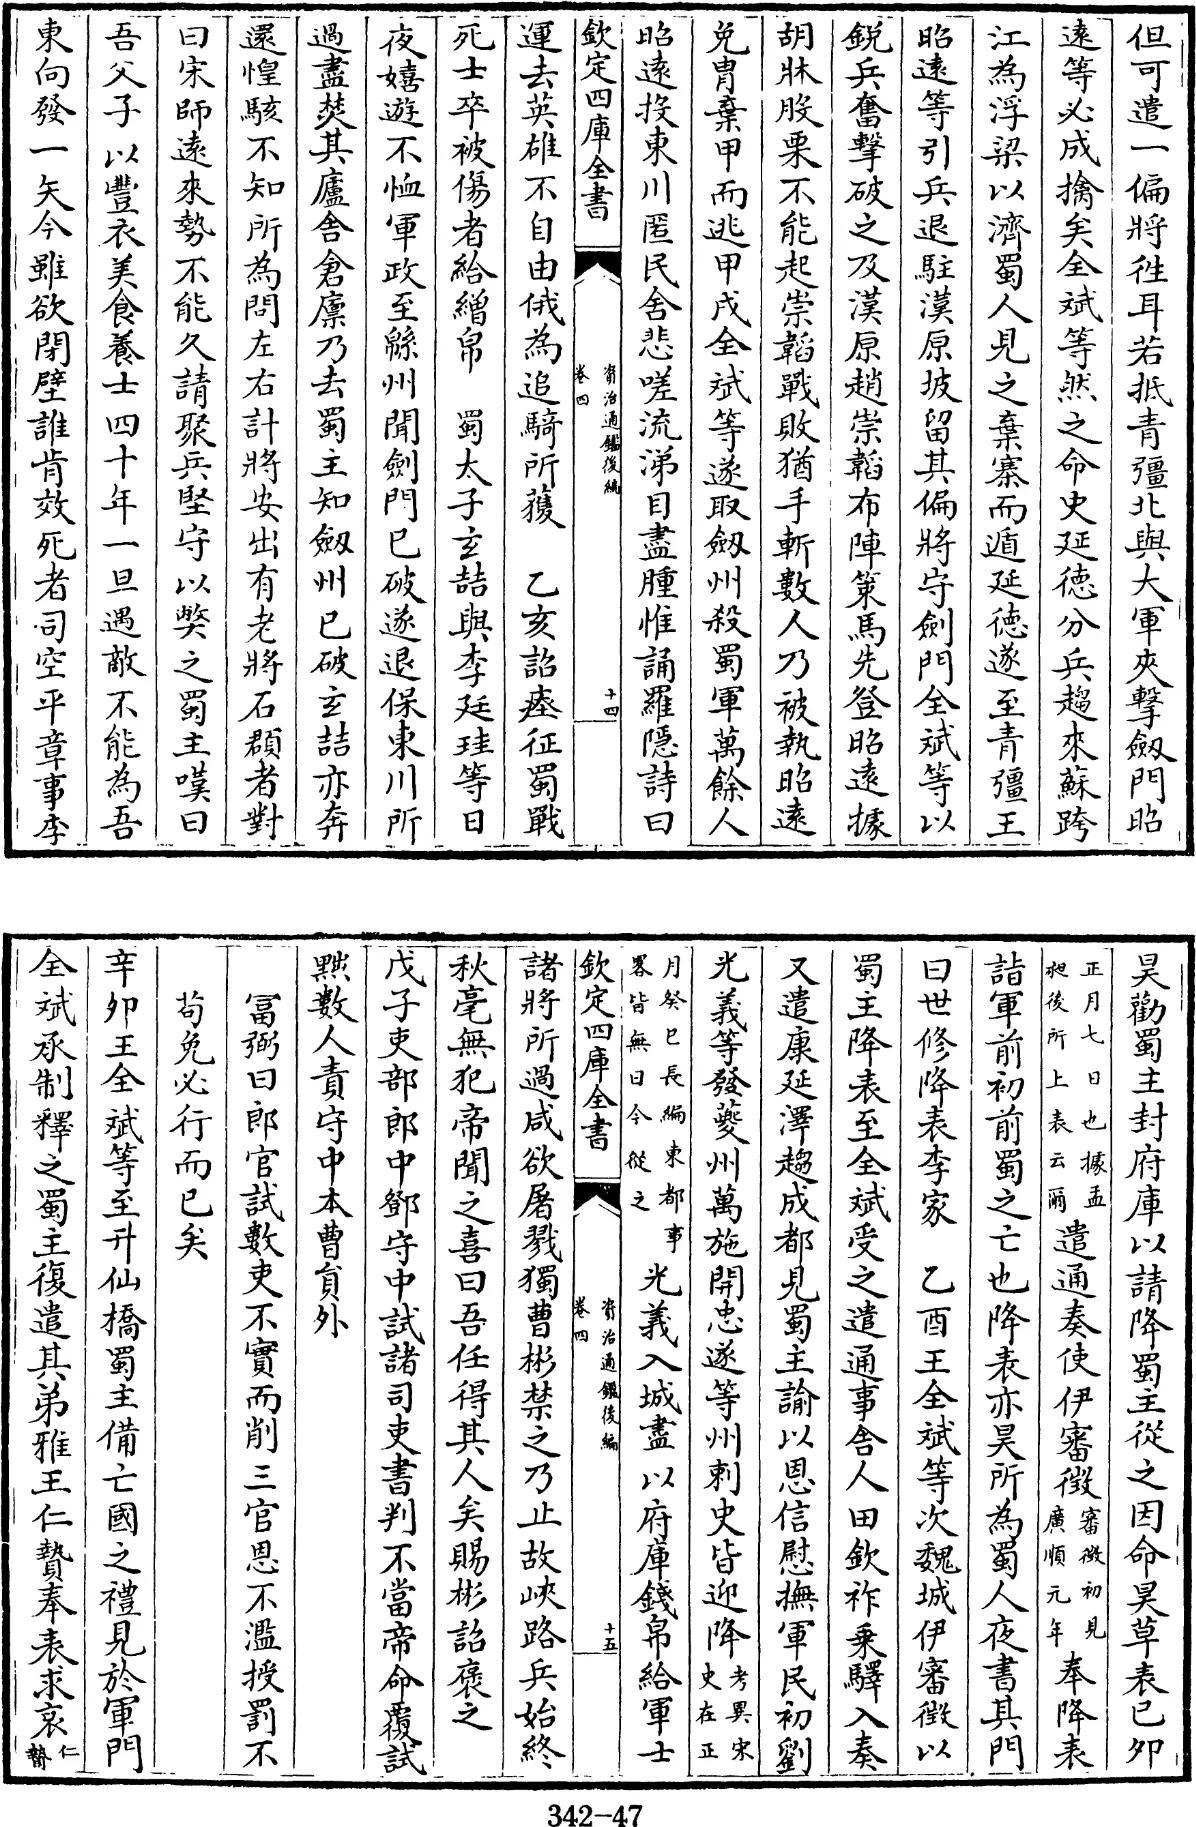 但可遣一偏將徃耳若抵青彊北與大軍夾擊劔門昭
逺等必成擒矣全斌等然之命史延徳分兵趨來蘇跨
江為浮梁以濟蜀人見之棄寨而遁延徳遂至青彊王
昭逺等引兵退駐漢原坡留其偏將守劍門全斌等以
鋭兵奮擊破之及漢原趙崇韜布陣策馬先登昭逺據
胡牀股栗不能起崇韜戰敗猶手斬數人乃被執昭逺
免胄棄甲而逃甲戌全斌等遂取劔州殺蜀軍萬餘人
昭逺投東川匿民舍悲嗟流涕目盡腫惟誦羅隠詩曰
欽定四庫全書
資治通鑑後編
卷四
十四
運去英雄不自由俄為追騎所獲　乙亥詔瘞征蜀戰
死士卒被傷者給繒帛　蜀太子玄喆與李廷珪等日
夜嬉遊不恤軍政至緜州聞劍門已破遂退保東川所
過盡焚其廬舍倉廪乃去蜀主知劔州已破玄喆亦奔
還惶駭不知所為問左右計將安出有老將石頵者對
曰宋師逺來勢不能久請聚兵堅守以獘之蜀主嘆曰
吾父子以豐衣美食養士四十年一旦遇敵不能為吾
東向發一矢今雖欲閉壁誰肯效死者司空平章事李
昊勸蜀主封府庫以請降蜀主從之因命昊草表已夘
正月七日也據孟
昶後所上表云爾
遣通奏使伊審徴
審徴初見
廣順元年
奉降表
詣軍前初前蜀之亡也降表亦昊所為蜀人夜書其門
曰世修降表李家　乙酉王全斌等次魏城伊審徴以
蜀主降表至全斌受之遣通事舍人田欽祚乗驛入奏
又遣康延澤趨成都見蜀主諭以恩信慰撫軍民初劉
光義等發夔州萬施開忠遂等州刺史皆迎降
考異宋
史在正
月癸巳長編東都事
畧皆無日今從之
光義入城盡以府庫錢帛給軍士
欽定四庫全書
資治通鑑後編
卷四
十五
諸將所過咸欲屠戮獨曹彬禁之乃止故峽路兵始終
秋毫無犯帝聞之喜曰吾任得其人矣賜彬詔褒之
戊子吏部郎中鄧守中試諸司吏書判不當帝命覆試
黙數人責守中本曹貟外
冨弼曰郎官試數吏不實而削三官恩不濫授罰不
苟免必行而已矣
辛夘王全斌等至升仙橋蜀主備亡國之禮見於軍門
全斌承制釋之蜀主復遣其弟雅王仁贄奉表求哀
仁
贄
342-47